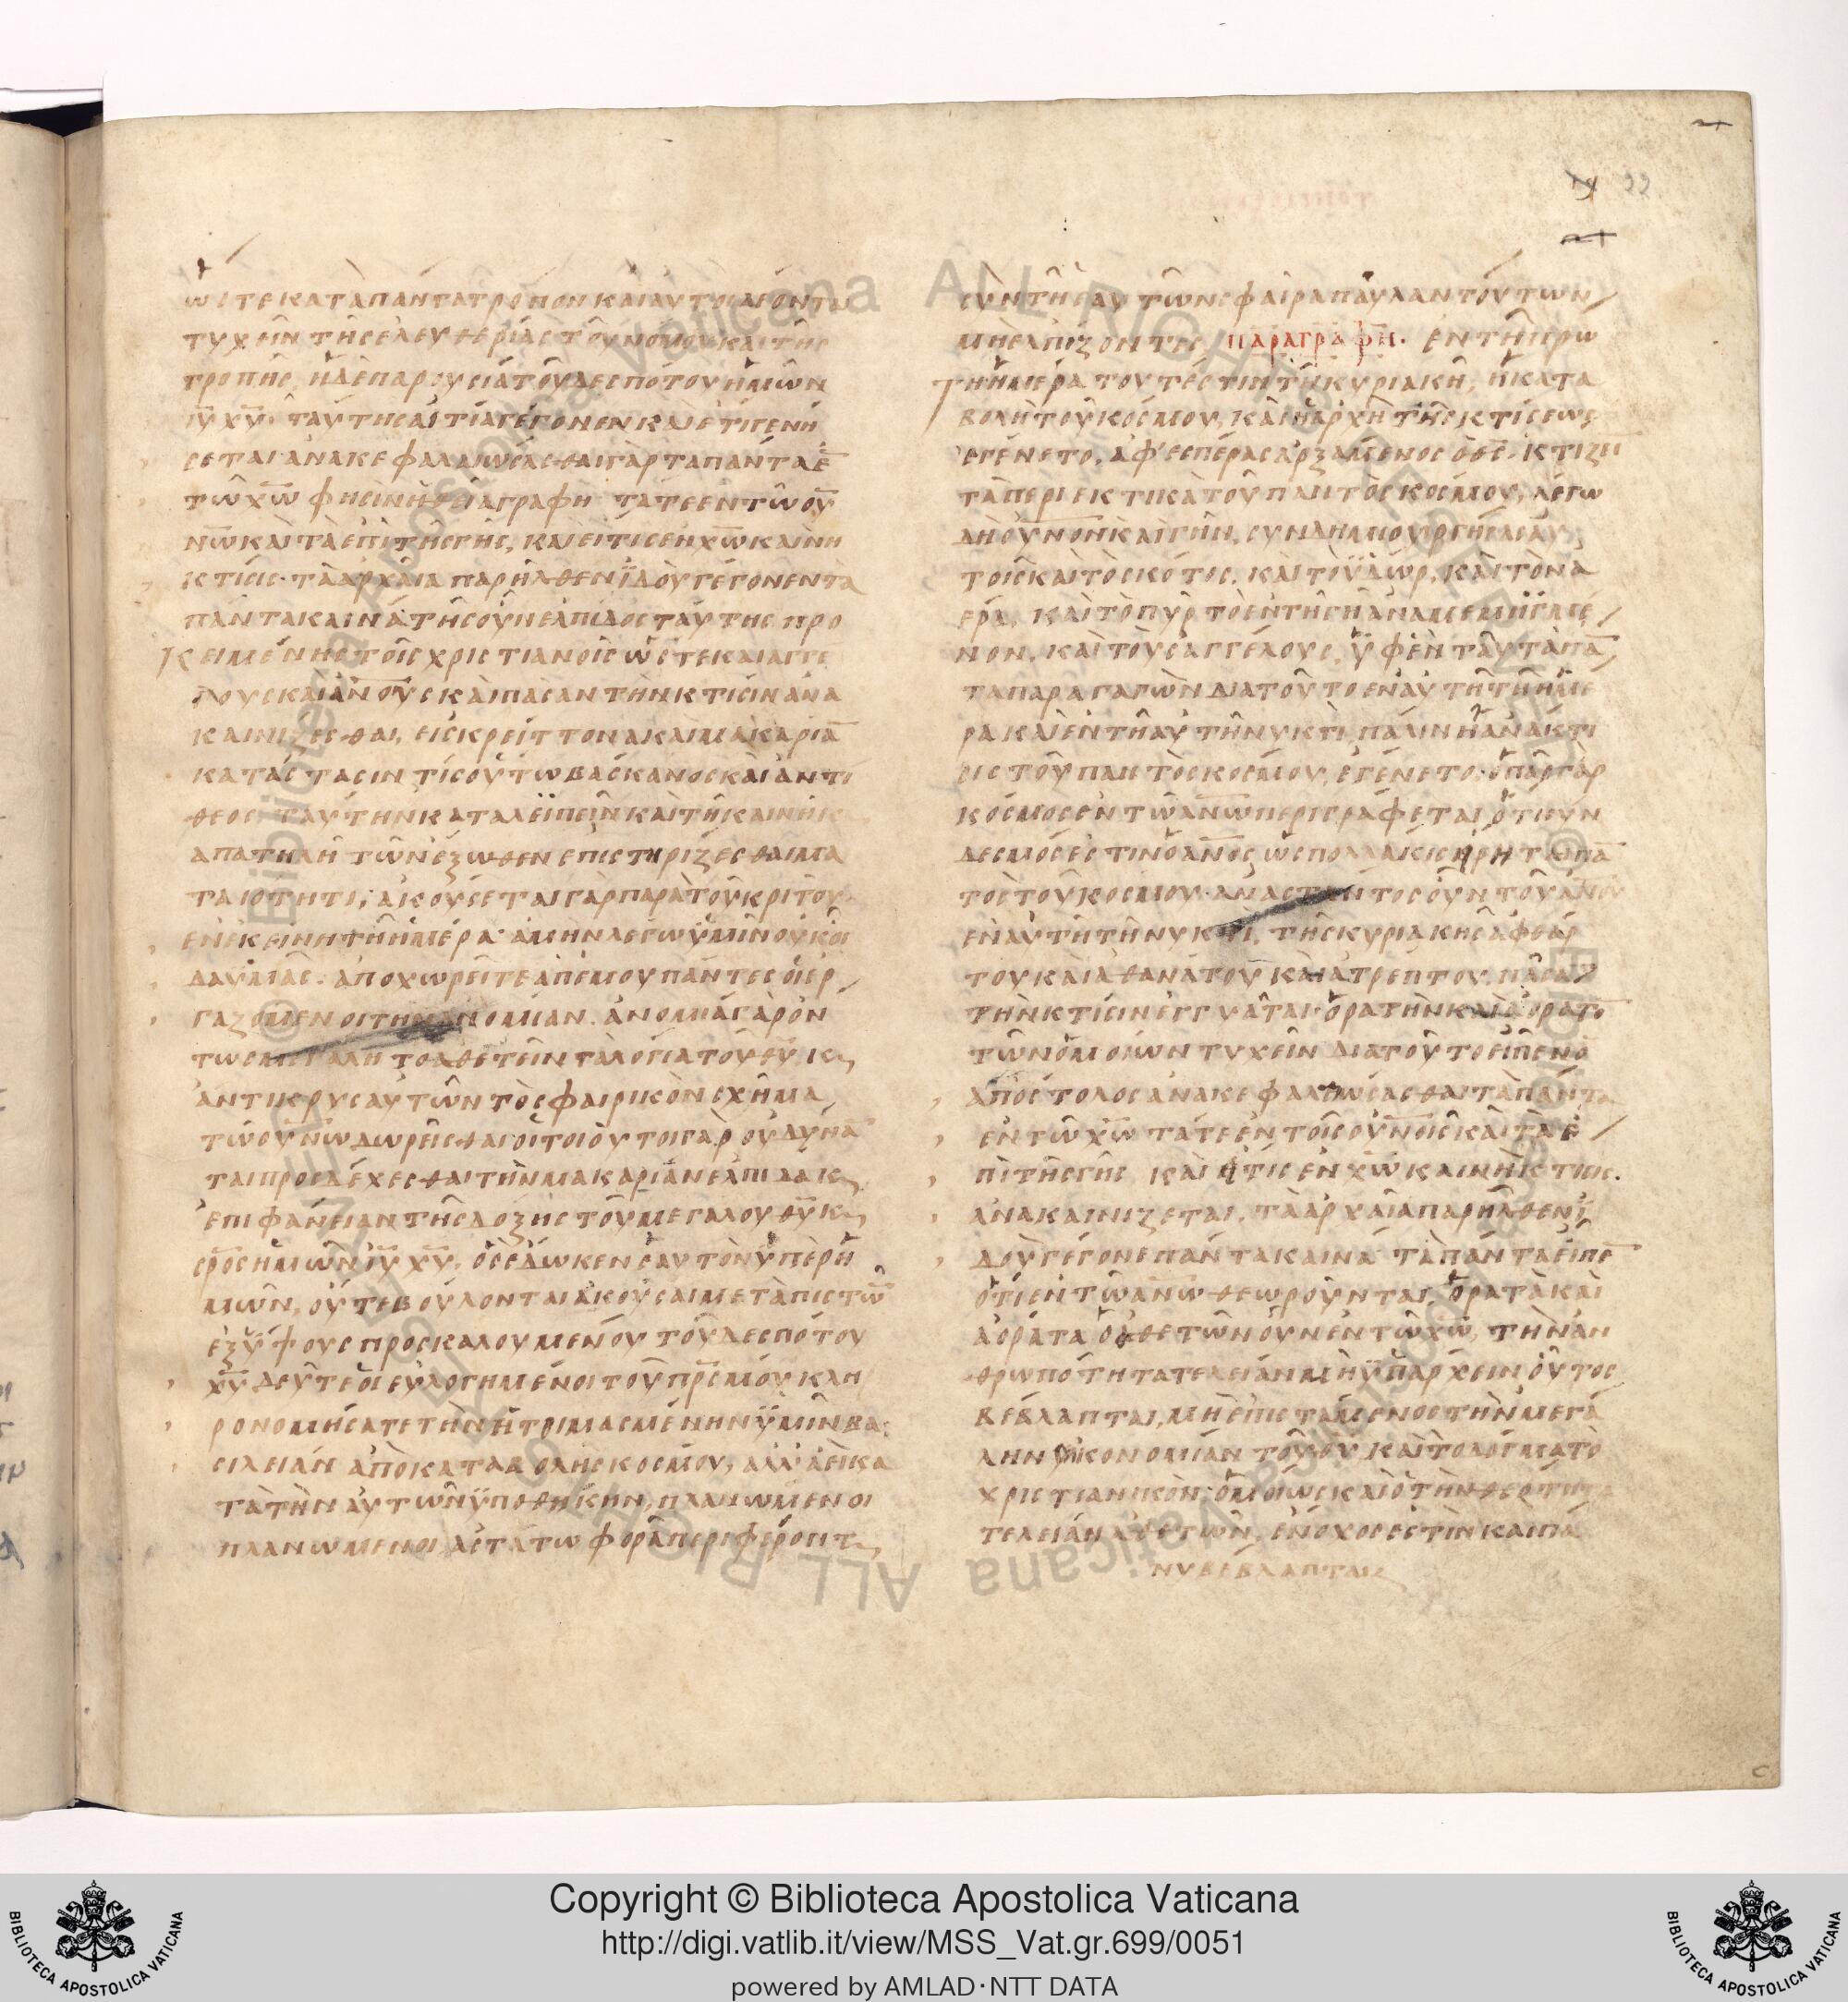 22
ωστε κατὰ πάντα τρόπον καὶ αυτοι δέοντα
τυχεῖν τῆς ἐλευθερίας τοῦ νόμου καὶ τῆς
τροπῆς. ἡ δὲ παρουσία τοῦ δεσπότου ἡμῶν
ιυ χυ. ταύτης αἰτία γέγονεν καὶ ἔτι γενή
σεται ἀνακεφαλαιώσασθαι γὰρ τὰ πάντα ἐ
τῶ χω φησὶν ἡ θεία γραφὴ τά τε ἐν τῶ ου
νω καὶ τὰ ἐπὶ τῆς γῆς, καὶ εἴ τις ἐν χω καινὴ
κτίσις· τὰ ἀρχαῖα παρῆλθεν ϊδοὺ γέγονεν τὰ
πάντα καινά· τῆς οὖν ἐλπίδος ταύτης προ
κειμένης τοῖς χριστιανοῖς ὥστε καὶ ἀγγέ
λους καὶ ανους καὶ πᾶσαν τὴν κτίσιν ἀνα
καινίζεσθαι, εἰς κρείττονα καὶ μακαρία
κατάστασιν τίς οὕτω βάσκανος καὶ ἀντί
θεος ταύτην καταλείπειν καὶ τῆ καινῆ κ
απατηλῆ τῶν ἔξωθεν ἐπιστηρίζεσθαι μα
ταιότητι; ἀκούσεται γὰρ παρὰ τοῦ κριτοῦ
ἐν ἐκείνη τῆ ἡμέρα· ἀμὴν λέγω ϋμῖν οὐκ οἶ
δα ὑμᾶς. ἀποχωρεῖτε ἀπ' ἐμοῦ πάντες οἱ ἐρ
γαζόμενοι τὴν ἀνομίαν. ἀνομία γὰρ ὄν
τως μεγάλη τὸ ἀθετεῖν τὰ λόγια τοῦ θυ κ
ἀντικρυς αὐτῶν τὸ σφαιρικὸν σχῆμα
τῶ ουνω δωρεῖσθαι οἱ τοιοῦτοι γὰρ οὐ δύνα
ται προσδέχεσθαι τὴν μακαρίαν ἐλπίδα κ
ἐπιφάνειαν τῆς δόξης τοῦ μεγάλου θυ κ
σρος ἡμῶν ιυ χυ. ὃς ἔδωκεν ἑαυτὸν ϋπὲρ ἡ
μῶν, οὔτε βούλονται ἀκοῦσαι μετὰ πιστῶ
ἐξ ὕψους προσκαλουμένου τοῦ δεσπότου
χυ δεῦτε οἱ εὐλογημένοι τοῦ πρς μου κλη
ρονομήσατε τὴν ἡτοιμασμένην ϋμῖν βα
σιλείαν ἀπὸ καταβολῆς κόσμου, ἀλλ' ἀεὶ κα
τὰ τὴν αὐτῶν ϋποθήκην, πλανώμενοι
πλανώμενοι ἀστάτω φορᾶ περιφέροντ
σὺν τῆ ἑαυτῶν σφαίρα παῦλαν τούτων
μὴ ἐλπίζοντες παραγραφή. ἐν τῆ πρώ
τη ἡμέρα τουτέστιν τῆ κυριακῆ, ἡ κατα
βολὴ τοῦ κόσμου, καὶ ἡ ἀρχὴ τῆς κτίσεως
ἐγένετο, ἀφ' ἑσπέρας ἀρξάμενος ὁ θς κτίζει
τὰ περιεκτικὰ τοῦ παντὸς κόσμου, λέγω
δὴ ουνον καὶ γῆν, συνδημιουργήσας αυ
τοῖς καὶ τὸ σκότος, καὶ τὸ ϋδωρ, καὶ τὸν ἀ
έρα, καὶ τὸ πῦρ τὸ ἐν τῆ γῆ ἀναμεμιγμέ
νον, καὶ τοὺς ἀγγέλους, ϋφ' ἓν ταῦτα πα
τα παραγαγὼν διὰ τοῦτο ἐν αὐτῆ τῆ ἡμέ
ρα καὶ ἐν τῆ αὐτῆ νυκτὶ, πάλιν ἡ ἀνάκτι
σις τοῦ παντὸς κόσμου, ἐγένετο· ὁ πᾶς γὰρ
κόσμος ἐν τῶ ανω περιγράφεται ὅτι σύν
δεσμός ἐστιν ὁ ανος ὡς πολλάκις εἴρηται πα
τὸς τοῦ κόσμου· ἀναστάντος οὖν τοῦ ανου
ἐν αὐτῆ τῆ νυκτὶ, τῆς κυριακῆς ἀφθάρ
του καὶ ἀθανάτου καὶ ἀτρέπτου, πᾶσα
τὴν κτίσιν ἐγγυᾶται· ὁρατὴν καὶ ἀόρατο
τῶν ὁμοίων τυχεῖν διὰ τοῦτο εἶπεν ὁ
ἀπόστολος ἀνακεφαλαιώσασθαι τὰ πάντα
ἐν τῶ χω τά τε ἐν τοῖς ουνοις καὶ τὰ ἐ
πὶ τῆς γῆς καὶ εἴ τις ἐν χω καινὴ κτίσις.
ἀνακαινίζεται, τὰ ἀρχαῖα παρῆλθεν ϊ
δοὺ γέγονε πάντα καινά· τὰ πάντα εἶπε
ὅτι ἐν τῶ ανω θεωροῦνται, ὁρατὰ καὶ
ἀόρατα ὁ ἀθετῶν οὖν ἐν τῶ χω, τὴν ἀν
θρωπότητα τελείαν μὴ ϋπάρχειν οὗτος
βέβλαπται, μὴ ἐπιστάμενος τὴν μεγά
λην οἰκονομίαν τοῦ θυ καὶ τὸ δόγμα τὸ
χριστιανικόν· ὁμοίως καὶ ὁ τὴν θεότητα
τελείαν ἀθετῶν, ἔνοχος ἐστὶν καὶ πά
νυ βέβλαπται
Copyright © Biblioteca Apostolica Vaticana
http://digi.vatlib.it/view/MSS_Vat.gr.699/0051
powered by AMLAD·NTT DATA
BIBLIOTECA APOSTOLICA VATICANA
BIBLIOTECA APOSTOLICA VATICANA